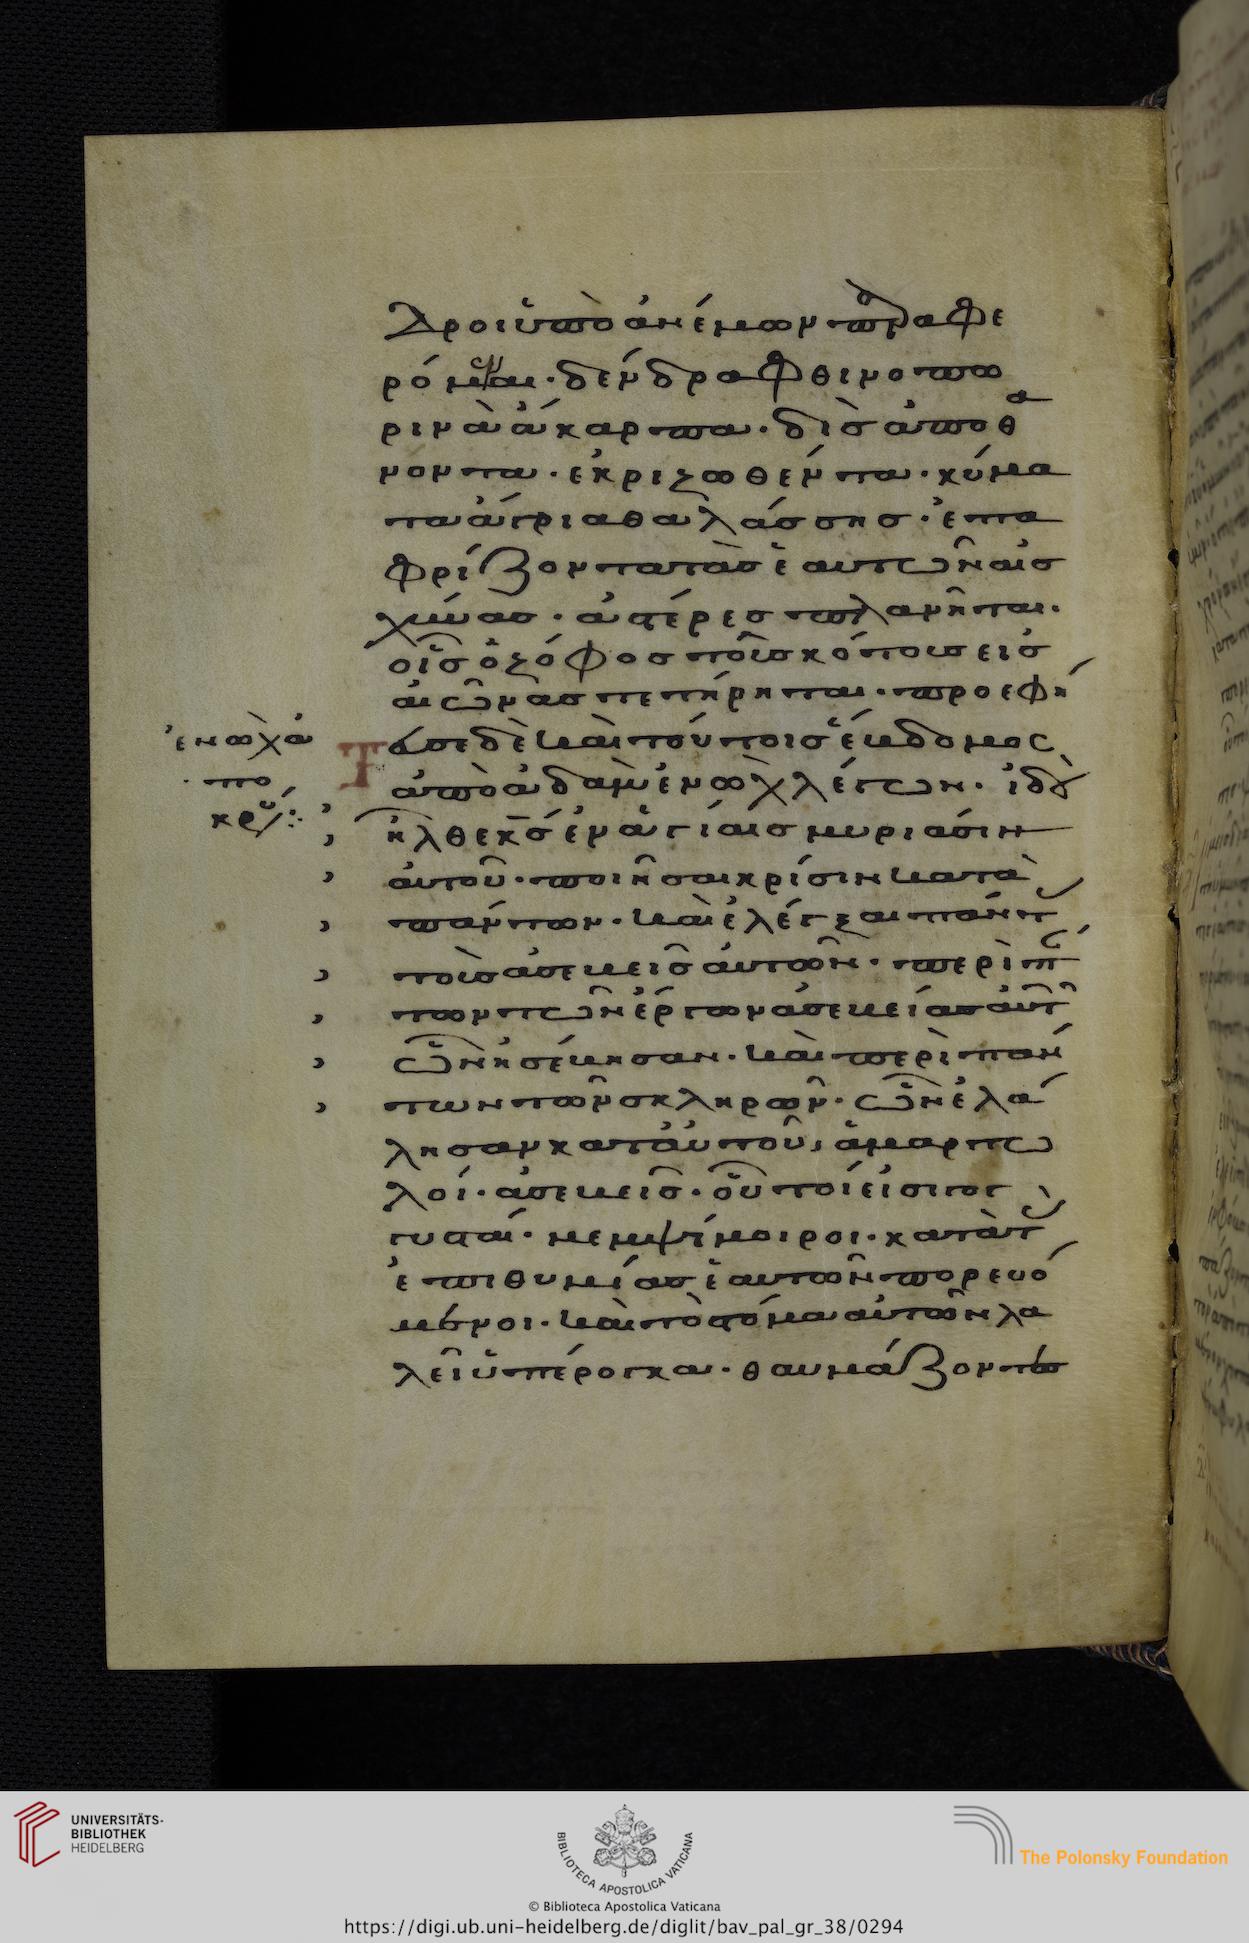 δροι ὑπὸ ἀνέμων παραφε
ρόμεναι· δένδρα φθινοπω
ρινὰ ἄκαρπα· δὶσ ἀποθα
νοντα· ἐκριζωθέντα· κύμα
τα ἄγρια θαλάσσησ· ἐπα
φρίζοντα τὰσ ἑαυτῶν αἰσ
χύνασ· ἀστέρεσ πλανῆται·
οἷσ ὁ ζόφοσ τοῦ σκότουσ εἰσ
αἰῶνασ τετήρηται· προεφή
τευσε δὲ καὶ τούτοισ ἕβδομος
ἀπὸ ἀδὰμ ἐνὼχ λέγων· ἰδοὺ
ἦλθε κσ ἐν ἁγίαισ μυριάσιν
αὐτοῦ· ποιῆσαι κρίσιν κατὰ
πάντων· καὶ ἐλέγξαι πάντασ
τοὺσ ἀσεβεῖσ αὐτῶν· περὶ πάν
των τῶν ἔργων ἀσεβείασ αὐτῶν
ὧν ἠσέβησαν· καὶ περὶ πάν
των τῶν σκληρῶν· ὧν ἐλά
λησαν κατ' αὐτοῦ, ἁμαρτω
λοί· ἀσεβεῖσ· οὗτοί εἰσι γογ
γυσταί· μεμψίμοιροι· κατὰ τὰσ
ἐπιθυμίασ ἑαυτῶν πορευό
μενοι· καὶ τὸ στόμα αὐτῶν λα
λεῖ ὑπέρογκα· θαυμάζοντεσ
ἐνὼχ ἀ
πο
κρύ
UNIVERSITÄTS-
BIBLIOTHEK
HEIDELBERG
BIBLIOTECA APOSTOLICA VATICANA
© Biblioteca Apostolica Vaticana
The Polonsky Foundation
https://digi.ub.uni-heidelberg.de/diglit/bav_pal_gr_38/0294